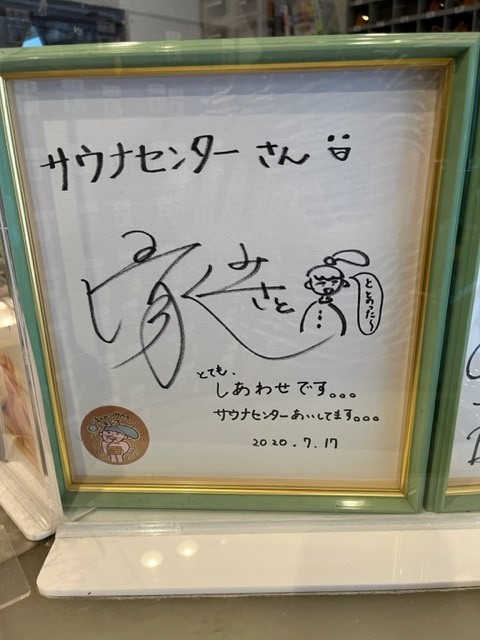 サウナセンターさん
家
みさと
ととのった〜
とても、
しあわせです。。。
サウナセンターあいしてます。。。
2020.7.17